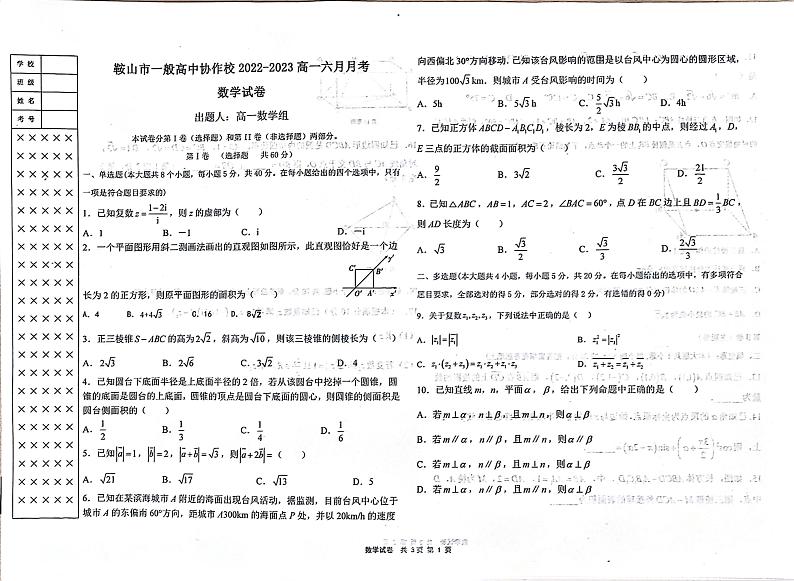 学 校
班 级
姓 名
考 号
× × × × ×
× × × × ×
× × × × ×
× × × × ×
× × × × ×
× × × × ×
× × × × ×
× × × × ×
× × × × ×
× × × × ×
× × × × ×
× × × × ×
× × × × ×
× × × × ×
× × × × ×
× × × × ×
× × × × ×
× × × × ×
× × × × ×
× × × × ×
鞍山市一般高中协作校 2022-2023 高一六月月考
数学试卷
出题人：高一数学组
本试卷分第 I 卷（选择题）和第 II 卷（非选择题）两部分。
第 I 卷 （选择题 共 60 分）
一、单选题(本大题共 8 个小题，每小题 5 分，共 40 分。在每小题给出的四个选项中，只有
一项是符合题目要求的)
1．已知复数 z = (1-2i)/i，则 z 的虚部为（ ）
A．1 B．-1 C．i D．-i
2．一个平面图形用斜二测画法画出的直观图如图所示，此直观图恰好是一个边
y' C' B' O' A' x'
长为 2 的正方形，则原平面图形的面积为（ ）
A．4 B．4+4√3 C．16 D．8√2
3．正三棱锥 S-ABC 的高为 2√2，斜高为 √10，则该三棱锥的侧棱长为（ ）
A．2√3 B．2√6 C．3√2 D．4
4．已知圆台下底面半径是上底面半径的 2 倍，若从该圆台中挖掉一个圆锥，圆
锥的底面是圆台的上底面，圆锥的顶点是圆台下底面的圆心，则圆锥的侧面积是
圆台侧面积的（ ）
A．1/2 B．1/3 C．1/4 D．1/6
5．已知 |a⃗|=1，|b⃗|=2，|a⃗+b⃗|=√3，则 |a⃗+2b⃗| =（ ）
A．√21 B．√17 C．√13 D．5
6．已知在某滨海城市 A 附近的海面出现台风活动，据监测，目前台风中心位于
城市 A 的东偏南 60°方向，距城市 A300km 的海面点 P 处，并以 20km/h 的速度
向西偏北 30°方向移动．已知该台风影响的范围是以台风中心为圆心的圆形区域，
半径为100√3 km．则城市 A 受台风影响的时间为（ ）
A．5h B．5√3 h C．5/2 √3 h D．4h
7．已知正方体 ABCD-A₁B₁C₁D₁，棱长为 2，E 为棱 BB₁ 的中点，则经过 A₁，D，
E 三点的正方体的截面面积为（ ）
A．9/2 B．3√2 C．3√3/2 D．21/2
8．已知 △ABC，AB=1，AC=2，∠BAC=60°，点 D 在 BC 边上且 BD=1/3 BC，
则 AD 长度为（ ）
A．√3 B．√3/2 C．√3/3 D．2√3/3
二、多选题(本大题共 4 小题，每小题 5 分，共 20 分。在每小题给出的选项中，有多项符合
题目要求，全部选对的得 5 分，部分选对的得 2 分，有选错的得 0 分)
9．关于复数 z₁,z₂,z₃，下列说法中正确的是（ ）
A．|z₁|=|z̄₁| B．z₁²=|z₁|²
C．z₁·(z₂+z₃)=z₁·z₂+z₁·z₃
10．已知直线 m，n，平面 α，β，给出下列命题中正确的是（ ）
A．若 m⊥α，n⊥β，且 m⊥n，则 α⊥β
B．若 m∥α，n∥β，且 m∥n，则 α∥β
C．若 m⊥α，n∥β，且 m⊥n，则 α⊥β
D．若 m⊥α，n∥β，且 m∥n，则 α⊥β
数学试卷 共 3 页 第 1 页